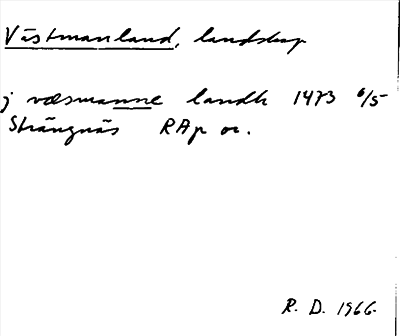 Västmanland, landskap
j væsmanne landh 1473 6/5
Strängnäs RAp or.
R. D. 1966.